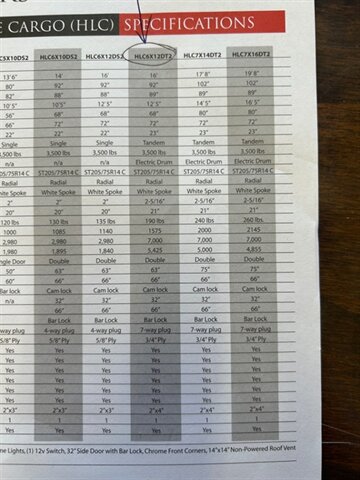 E CARGO (HLC) SPECIFICATIONS
C5X10DS2 HLC6X10DS2 HLC6X12DS2 HLC6X12DT2 HLC7X14DT2 HLC7X16DT2
13'6" 14' 16' 16' 17'8" 19'8"
80" 92" 92" 92" 102" 102"
82" 88" 88" 89" 89" 89"
10'5" 10'5" 12'5" 12'5" 14'5" 16'5"
56" 68" 68" 68" 80" 80"
66" 72" 72" 72" 72" 72"
22" 22" 22" 23" 23" 23"
Single Single Single Tandem Tandem Tandem
3,500 lbs 3,500 lbs 3,500 lbs 3,500 lbs 3,500 lbs 3,500 lbs
n/a n/a n/a Electric Drum Electric Drum Electric Drum
205/75R14 C ST205/75R14 C ST205/75R14 C ST205/75R14 C ST205/75R14 C ST205/75R14 C
Radial Radial Radial Radial Radial Radial
White Spoke White Spoke White Spoke White Spoke White Spoke White Spoke
2" 2" 2" 2-5/16" 2-5/16" 2-5/16"
20" 20" 20" 21" 21" 21"
120 lbs 130 lbs 135 lbs 190 lbs 240 lbs 260 lbs
1000 1085 1140 1575 2000 2145
2,980 2,980 2,980 7,000 7,000 7,000
1,980 1,895 1,840 5,425 5,000 4,855
ngle Door Double Double Double Double Double
50" 63" 63" 63" 75" 75"
60" 66" 66" 66" 66" 66"
Bar lock Cam lock Cam lock Cam lock Cam lock Cam lock
n/a 32" 32" 32" 32" 32"
66" 66" 66" 66" 66"
Bar Lock Bar Lock Bar Lock Bar Lock Bar Lock
-way plug 4-way plug 4-way plug 7-way plug 7-way plug 7-way plug
5/8" Ply 5/8" Ply 5/8" Ply 3/4" Ply 3/4" Ply 3/4" Ply
Yes Yes Yes Yes Yes Yes
Yes Yes Yes Yes Yes Yes
Yes Yes Yes Yes Yes Yes
Yes Yes Yes Yes Yes Yes
Yes Yes Yes Yes Yes Yes
Yes Yes Yes Yes Yes Yes
2"x3" 2"x3" 2"x3" 2"x4" 2"x4" 2"x4"
1 1 1 1 1 1
Yes Yes Yes Yes Yes Yes
ne Lights, (1) 12v Switch, 32" Side Door with Bar Lock, Chrome Front Corners, 14"x14" Non-Powered Roof Vent